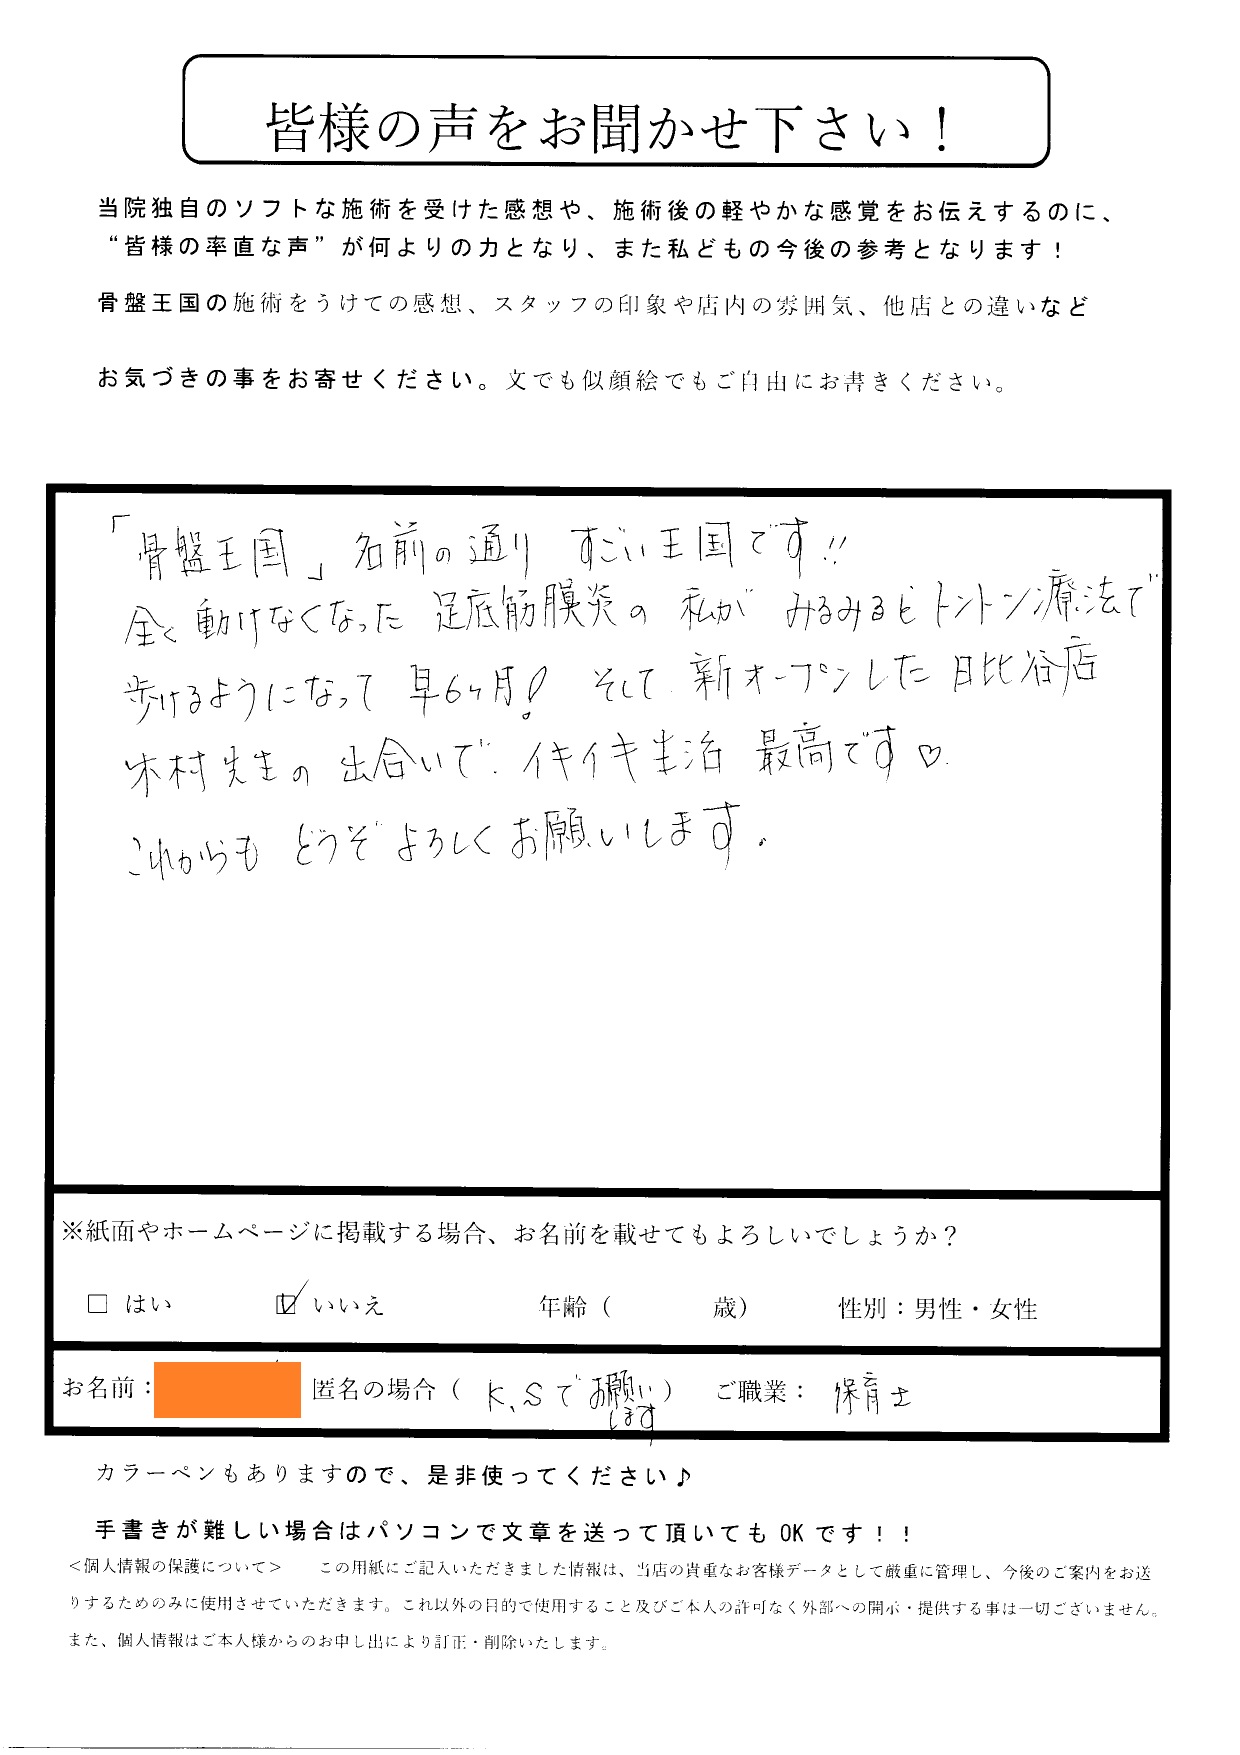 皆様の声をお聞かせ下さい！
当院独自のソフトな施術を受けた感想や、施術後の軽やかな感覚をお伝えするのに、
“皆様の率直な声”が何よりの力となり、また私どもの今後の参考となります！
骨盤王国の施術をうけての感想、スタッフの印象や店内の雰囲気、他店との違いなど
お気づきの事をお寄せください。文でも似顔絵でもご自由にお書きください。
「骨盤王国」名前の通り すごい王国です!!
全く動けなくなった 足底筋膜炎の 私が みるみるとトントン療法で
歩けるようになって 早6ヶ月! そして 新オープンした 日比谷店
木村先生の 出合いで イキイキ生活 最高です♡.
これからも どうぞ よろしく お願いします。
※紙面やホームページに掲載する場合、お名前を載せてもよろしいでしょうか？
□ はい ☑ いいえ 年齢（ 歳） 性別：男性・女性
お名前： 匿名の場合（ K.Sでお願いします ） ご職業： 保育士
カラーペンもありますので、是非使ってください♪
手書きが難しい場合はパソコンで文章を送って頂いてもOKです！！
＜個人情報の保護について＞ この用紙にご記入いただきました情報は、当店の貴重なお客様データとして厳重に管理し、今後のご案内をお送
りするためのみに使用させていただきます。これ以外の目的で使用すること及びご本人の許可なく外部への開示・提供する事は一切ございません。
また、個人情報はご本人様からのお申し出により訂正・削除いたします。